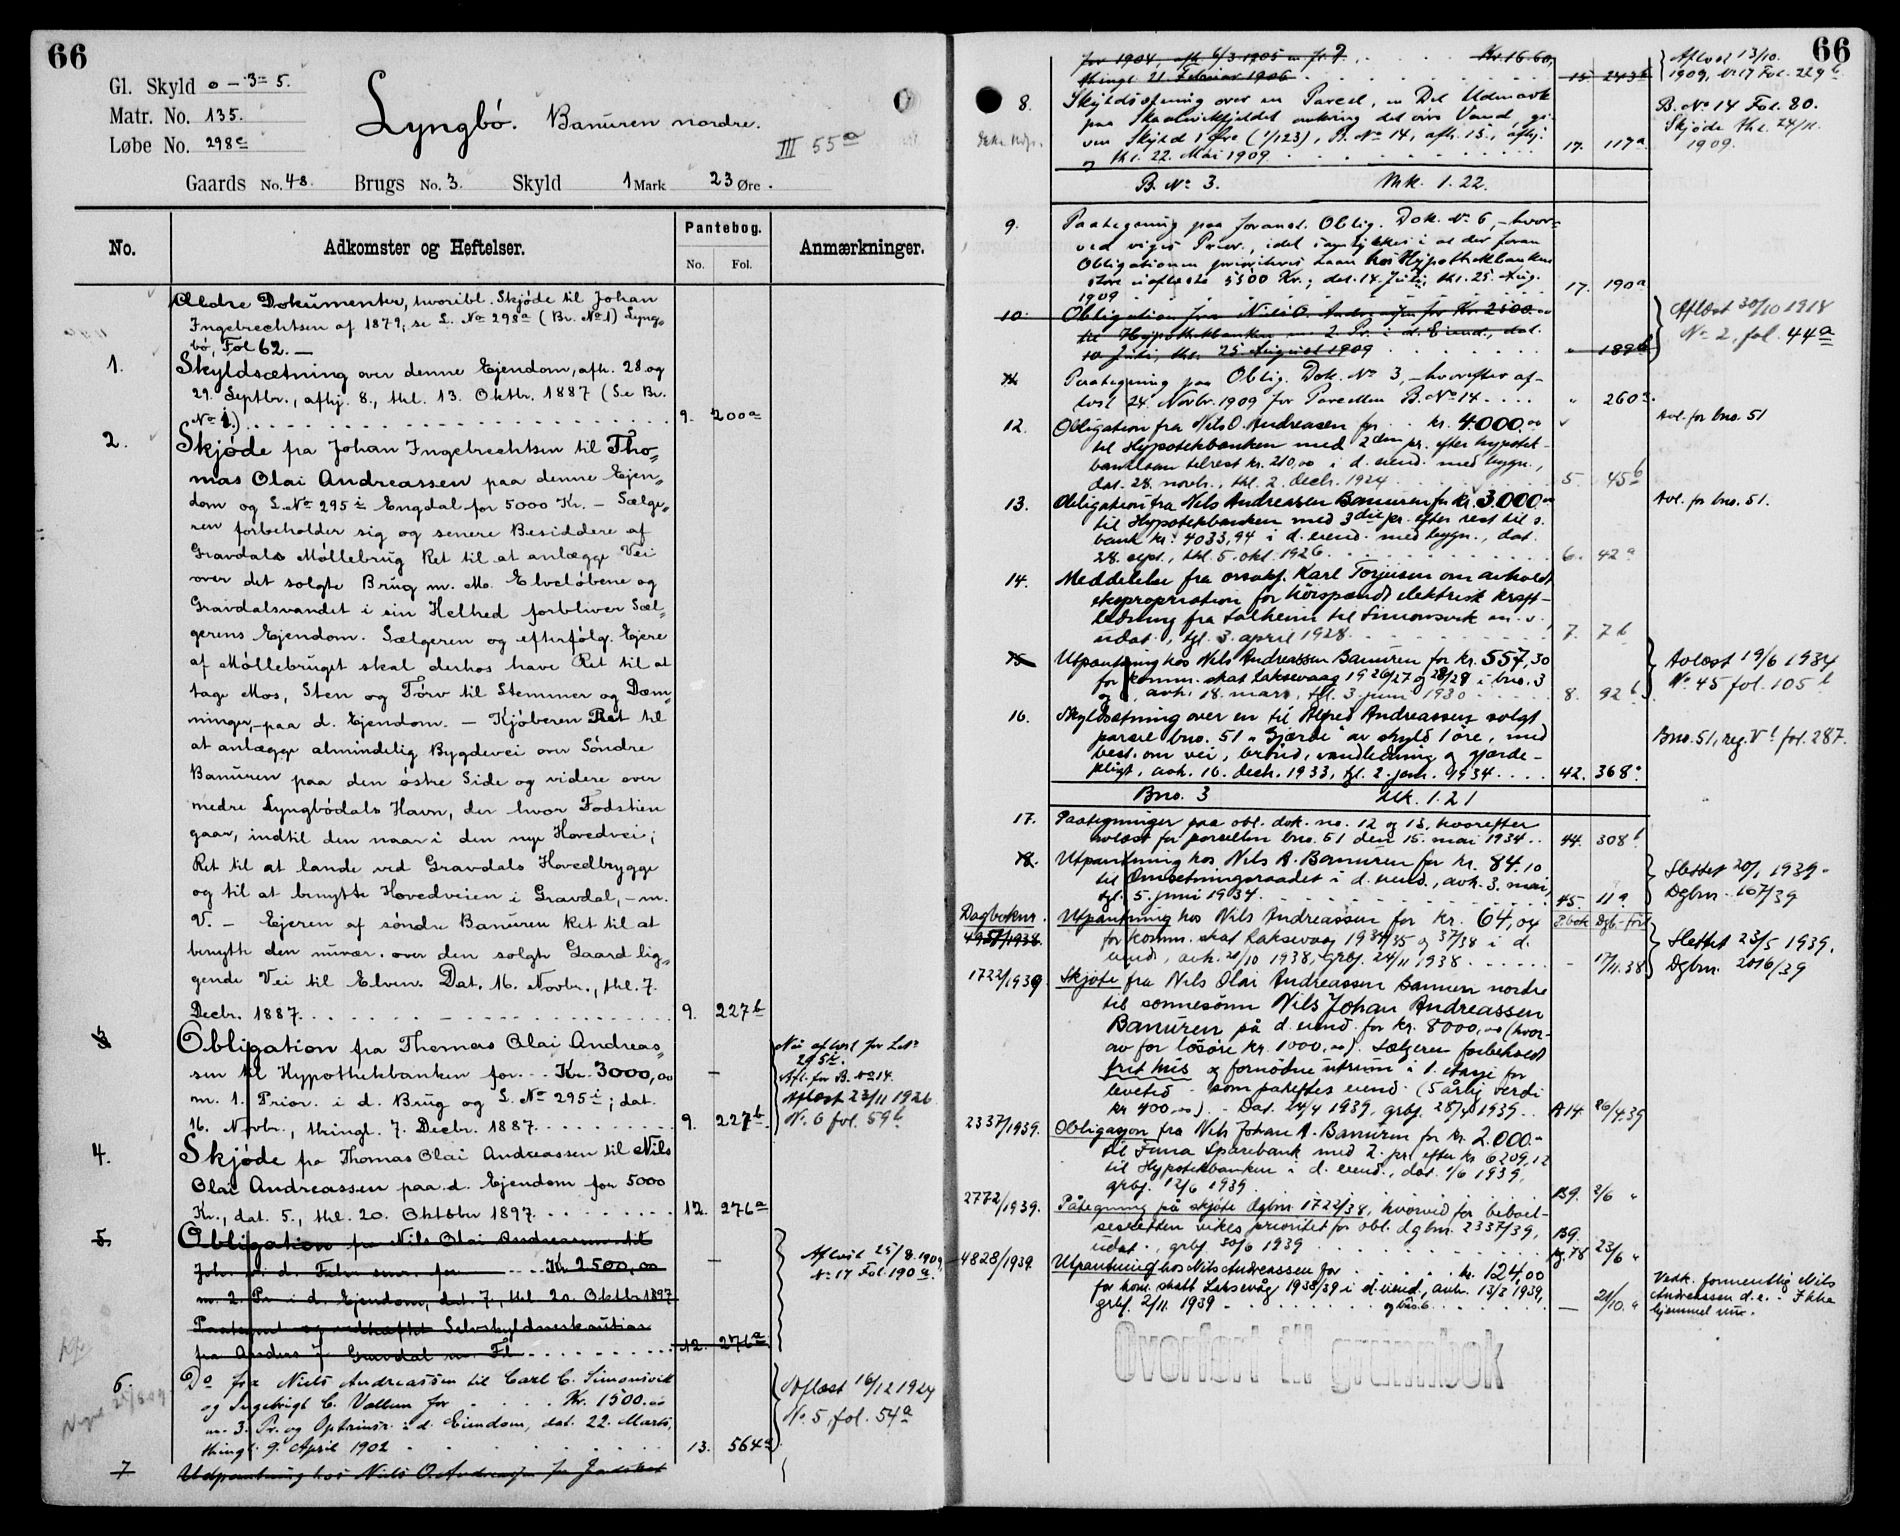 66
Gl. Skyld 0 – 3 = 5.
Matr. No. 135.
Løbe No. 298c
Lyngbö. Banuren nordre.
III 55a
Gaards No. 48. Brugs No. 3. Skyld 1 Mark 23 Øre.
No. Adkomster og Heftelser. Pantebog. No. Fol. Anmærkninger.
Ældre Dokumenter, hvoribl. Skjøde til Johan
Ingebrechtsen af 1879, se L. No 298a (Br. No 1) Lyng-
bö, Fol 62. —
1. Skyldsætning over denne Ejendom, afh. 28. og
29. Septbr., afhj. 8., thl. 13. Oktbr. 1887 (Se Br.
No 1.) 9. 200a
2. Skjöde fra Johan Ingebrechtsen til Tho-
mas Olai Andreassen paa denne Ejen-
dom og L. No 295i Engdal for 5000 Kr. – Sælge-
ren forbeholder sig og senere Besiddere af
Gravdals Möllebrug Ret til at anlægge Vei
over det solgte Brug m. M. Elvelöbene og
Gravdalsvandet i sin Helhed forbliver Sæl-
gerens Ejendom. Sælgeren og efterfölg. Ejere
af Möllebruget skal derhos have Ret til at
tage Mos, Sten og Törv til Stemmer og Dæm-
ninger, paa d. Ejendom. – Kjöberen Ret til
at anlægge almindelig Bygdevei over Söndre
Banuren paa den östre Side og videre over
nedre Lyngbödals Havn, der hvor Fodstien
gaar, indtil den naar i den nye Hovedvei;
Ret til at lande ved Gravdals Hovedbrygge
og til at benytte Hovedveien i Gravdal, – m.
V. – Ejeren af söndre Banuren Ret til at
benytte den nuvær. over den solgte Gaard lig-
gende Vei til Elven. Dat. 16. Novbr., thl. 7.
Decbr. 1887. 9. 227b
3 Obligation fra Thomas Olai Andreas-
sen til Hypothekbanken for Kr. 3000,00
m. 1. Prior. i d. Brug og L. No 295i; dat.
16. Novbr., thingl. 7. Decbr. 1887. 9. 227b
Afl. for B. No 14.
Aflæst 23/11 1926
No. 6 fol. 59b
4. Skjøde fra Thomas Olai Andreassen til Nils
Olai Andreassen paa d. Ejendom for 5000
Kr., dat. 5., thl. 20. Oktober 1897 12. 276a
5. Obligation fra Nils Olai Andreassen til
for Kr 2500,00
m. 2. Pr. i d. Ejendom, dat. 7., thl 20. Oktbr 1897
Selvskyldnerkaution
fra Anders J. Gravdal 12. 276a
Aflöst 25/8. 1909,
No 17 Fol. 190a.
6. Do fra Niels Andreassen til Carl C. Simonsvik
og Ingebrigt C. Vallum for Kr. 1500.00
m. 3. Pr. og Optrinsr. i d. Eiendom, dat. 22. Marts,
thingl. 9. April 1902 13. 564a
Aflæst 16/12 1924
No. 5, fol. 54a
7 Udpantning hos Niels O. Andreassen for
66
for 1904, afh 6/3 1905 Kr. 16.60,
thingl. 21 Februar 1906 15 243b
Aflæst 13/10.
1909, No 17 Fol. 229b.
8. Skyldsætning over en Parcel, en Del Udmark
paa omkring det övre Vand, gi-
ven Skyld 1 Øre (1/123), B. No 14, afh. 15., afhj.
og thl. 22. Mai 1909 17. 117a
B. No 14 Fol. 80.
Skjøde thl. 24/11.
1909.
B. No 3. Mk. 1.22.
9. Paategning paa foranst. Oblig. Dok. No 6, – hvor-
ved viges Prior., idet samtykkes i at der foran
Obligationen prioriteres Laan hos Hypothekbanken
5500 Kr.; dat. 14. Juli, thl. 25. Aug.
1909 17. 190a
10. Obligation fra Nils O. Andreassen for Kr. 2500.00
til Hypothekbanken m 2. Pr. i d. Eiend., dat.
10 Juli, thl. 25. August 1909 " 189b
Aflæst 30/10 1918
No 2. fol. 44a
11. Paategning paa Oblig. Dok. No 3, – hvorefter af-
löst 24. Novbr. 1909 for Parcellen B. No 14 " 260a.
12. Obligation fra Nils O. Andreasen for kr. 4000.00
til Hypotekbanken med 2den pr. efter hypotek-
banklaan tilrest kr. 210,00 i d. eiend. med bygn.,
dat. 28. novb., thl. 2. decb. 1924 5. 45b
Avl. for bno. 51
13. Obligation fra Nils Andreassen Banuren for kr. 3.000.00
til Hypotekbanken med 3die pr. efter rest til s.
bank kr. 4033,94 i d. eiend. med bygn., dat.
28. sept., thl. 5. okt. 1926. 6. 42a
Avl. for bno. 51.
14. Meddelelse fra orsakf. Karl Torjusen om avholdt
ekspropriation for höispændt elektrisk kraft-
ledning fra Solheim til Simonsvik m. v.
udat., tgl. 3. april 1928. 7. 7b
15 Utpantning hos Nils Andreassen Banuren for kr. 557,30
for komm. skat Laksevaag 1926/27 og 28/29 i bno. 3
og , avh. 18. mars, tgl. 3. juni 1930 8. 92b
Avlæst 19/6 1934
No. 45 fol. 105b
16. Skyldsætning over en til Alfred Andreassen solgt
parsel bno. 51 „Gjærde" av skyld 1 öre, med
best. om vei, brönd, vandledning og gjærde-
pligt, avh. 16. decb. 1933, tgl. 2. jan. 1934 42. 368a
Bno. 51, reg. V fol. 287.
Bno. 3 Mk. 1.21
17. Paategninger paa obl. dok. no. 12 og 13, hvorefter
avlæst for parsellen bno. 51 den 15. mai 1934 44. 308b
18. Utpantning hos Nils A. Banuren for kr. 84,10
til Omsetningsraadet i d. eiend., avh. 3. mai,
tgl. 5. juni 1934. 45. 11a
Slettet 20/1 1939 –
Dgbnr. 167/39
Dagboknr. P.bok Dgb.-förl
4957/1938. Utpantning hos Nils Andreassen for kr. 64,04
for komm. skat Laksevaag 1934/35 og 37/38 i d.
eiend., avh. 21/10 1938, grbf. 24/11 1938 – 17/11.38
Slettet 23/5 1939.
Dgbnr. 2016/39
1722/1939 Skjöte fra Nils Olai Andreassen Banuren nordre
til sonnesönn Nils Johan Andreassen
Banuren på d. eiend. for kr. 8000,00 (hvor-
av for lösöre kr. 1000,00). Selgeren forbeholdt
frit hus og fornödne uterum i 1. etasje for
levetid – som paheftes eiend. (5 årlig verdi
kr 400,00). – Dat. 24/4 1939, grbf. 28/4 1939 A14. 26/4.39
2337/1939. Obligasjon fra Nils Johan A. Banuren for kr. 2.000.–
til Fana Sparebank med 2. pr. efter kr 6209,12
til Hypotekbanken i d. eiend., dat. 1/6 1939,
grbf. 12/6 1939 B9. 2/6 "
2772/1939. Påtegning på skjöte dgbnr. 1722/38, hvorved for beboel-
sesretten vikes prioritet for obl. dgbnr. 2337/39,
udat., grbf. 30/6 1939 B9. fg. 78 23/6 "
4828/1939 Utpantning hos Nils Andreassen for kr. 124,00
for kom. skatt Laksevåg 1938/39 i d. eiend., avh. 13/3 1939,
grbf. 2/11 1939 og bno. 6 — 21/10. "
Vedk. formentlig Nils
Andreassen d.e. – Ikke
hjemmel
Overført til grunnbok